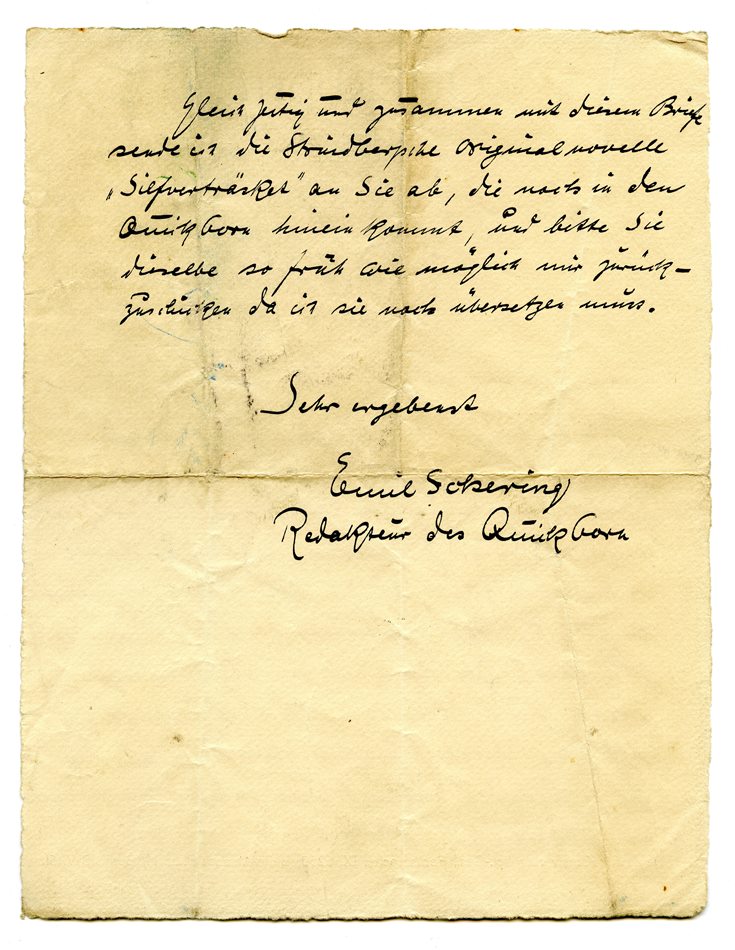 Gleichzeitig und zusammen mit diesem Briefe
sende ich die Strindbergsche Originalnovelle
„Silfverträsket“ an Sie ab, die noch in den
Quickborn hineinkommt, und bitte Sie
dieselbe so früh wie möglich mir zurück-
zuschicken da ich sie noch übersetzen muss.
Sehr ergebenst
Emil Schering
Redakteur des Quickborn